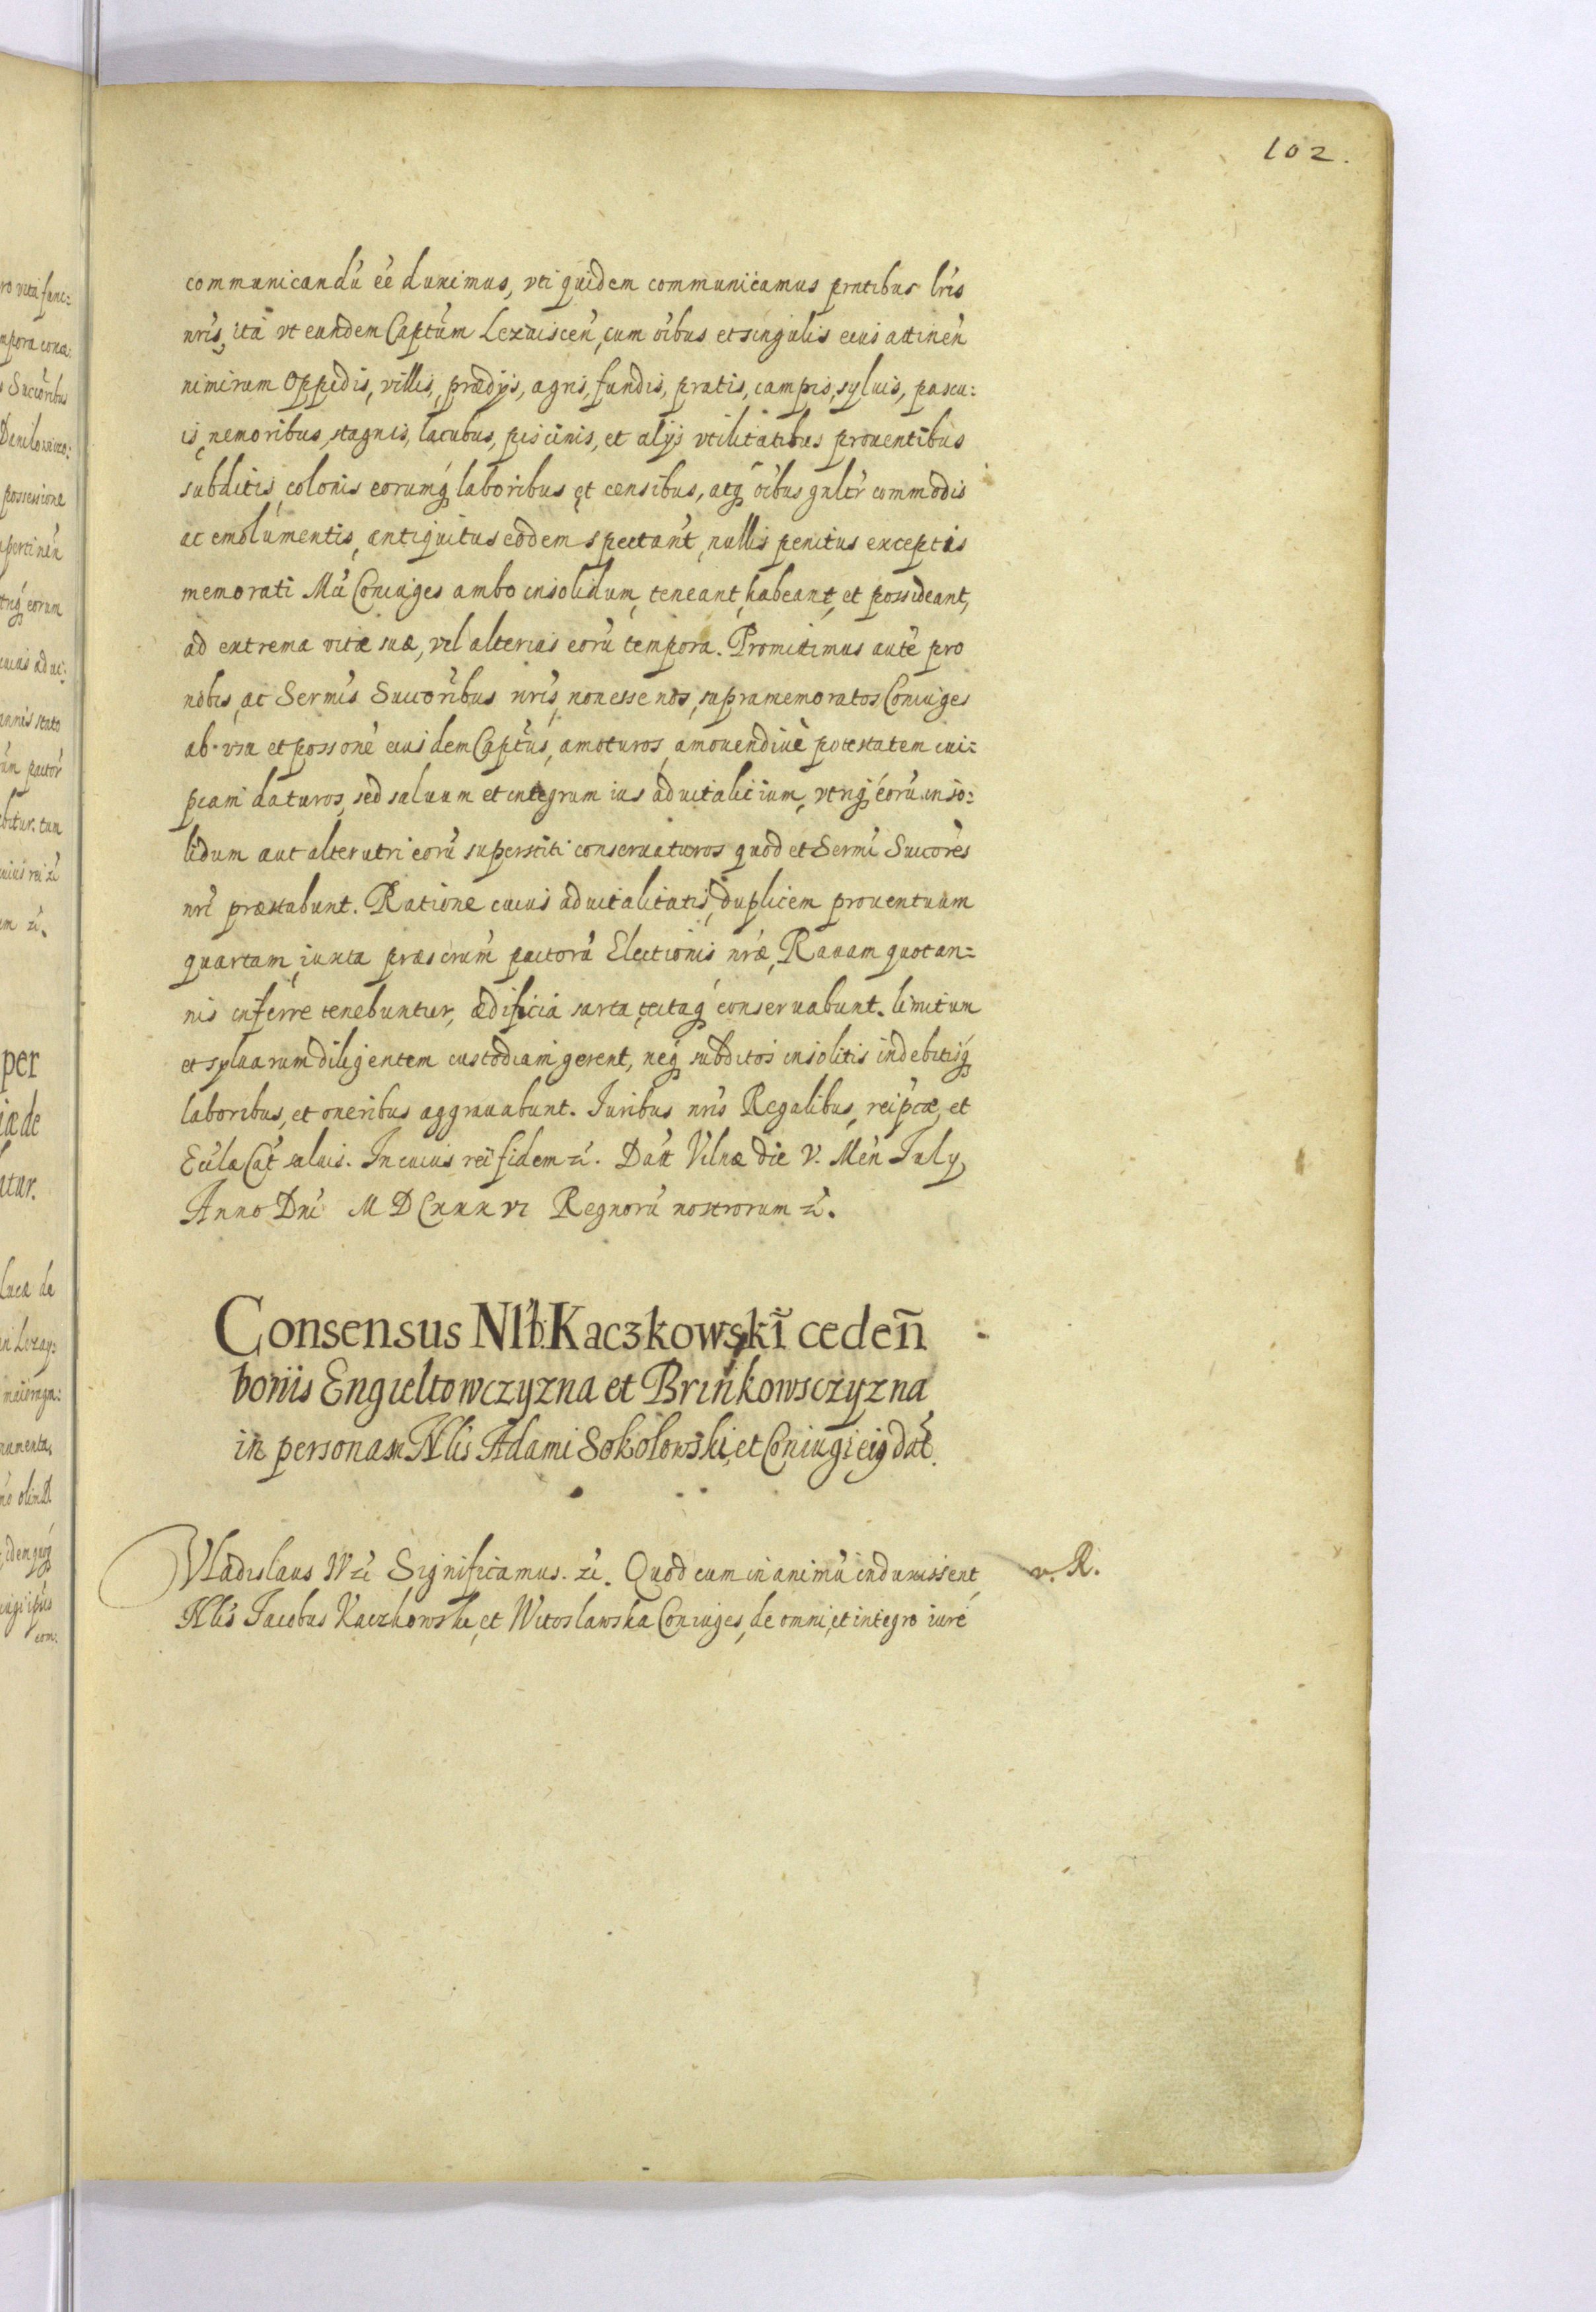 102.
communicandũ eẽ duximus, vti quidem communicamus pntibus lris
nris, ita vt eundem Captũm Lezaiscen̄, cum oibus et singulis eius attinen̄
nimirum Oppidis, villis, prædijs, agris, fundis, pratis, campis, syluis, pascu:
is, nemoribus, stagnis, lacubus, piscinis, et alijs vtilitatibus prouentibus
subditis, colonis eorumq́ laboribus et censibus, atq́ oibus gnltr commodis
ac emolumentis, antiquitus eodem spectant̄, nullis penitus exceptis
memorati Mci Coniuges ambo insolidum, teneant, habeant, et possideant,
ad extrema vitæ suæ, vel alterius eorũ tempora. Promittimus autẽ pro
nobis, ac Sermis Succoribus nris, non esse nos, supramemoratos Coniuges
ab vsu et possone eiusdem Captus, amoturos, amouendiue potestatem cui:
piam daturos, sed saluum et integrum ius aduitalitium, vtriq́ eorũ inso:
lidum aut alterutri eorũ superstiti conseruaturos quod et Sermi Succores
nri præstabunt. Ratione cuius aduitalitatis, duplicem prouentuum
quartam, iuxta præscrum pactorũ Electionis nræ, Rauam quotan:
nis inferre tenebuntur, ædificia sarta, tectaq́ conseruabunt. limitum
et syluarum diligentem custodiam gerent, neq́ subditos insolitis indebitisq́
laboribus, et oneribus aggrauabunt. Iuribus nris Regalibus, reipcæ, et
Eccla Cat saluis. In cuius rei fidem ꝛc̃. Datt Vilnæ die V. Men̄ July
Anno Dni MDCxxxvi Regnorũ nostrorum ꝛc̃.
Consensus Nlb. Kaczkowskĩ ceden̄
bonis Engieltowczyzna et Brinkowsczyzna
in personam Nlis Adami Sokolowski, et Coniugi eiq dat̃.
Vladislaus IV ꝛc̃ Significamus. ꝛc̃. Quod cum in animũ induxissent v. R.
Nlis Jacobus Kaczkowski, et Witoslawska Coniuges, de omni, et integro iure